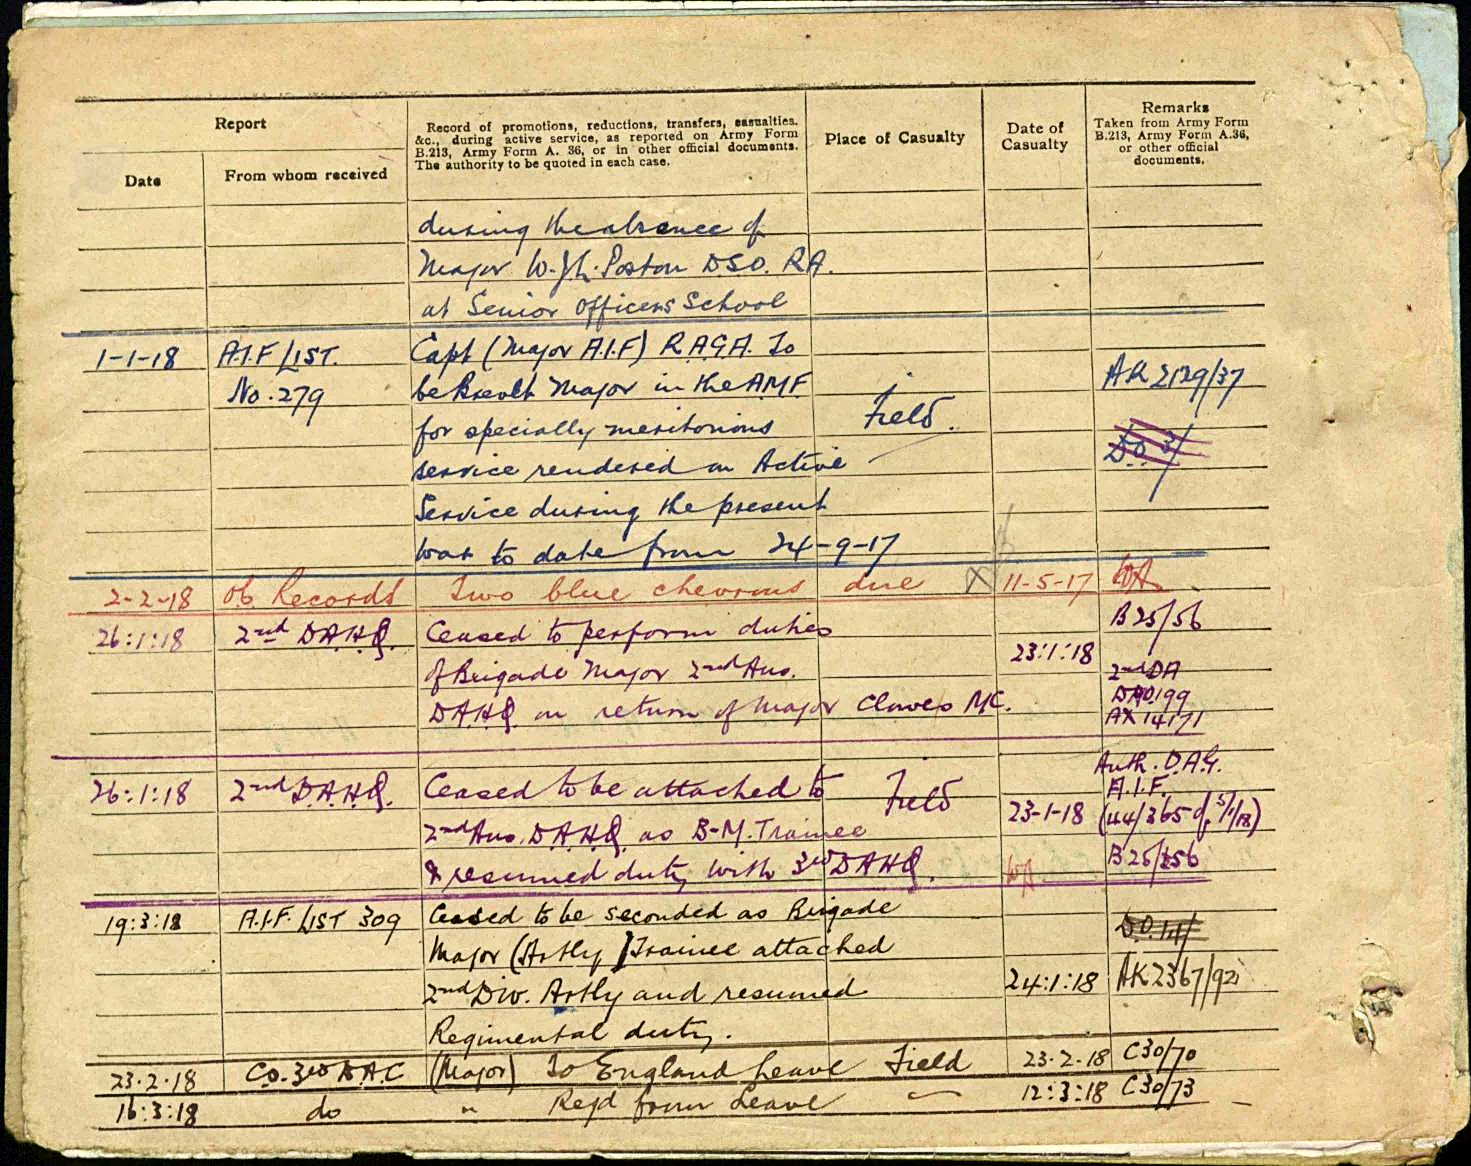 Report
Date
From whom received
Record of promotions, reductions, transfers, casualties,
&c., during active service, as reported on Army Form
B.213, Army Form A. 36, or in other official documents.
The authority to be quoted in each case.
Place of Casualty
Date of
Casualty
Remarks
Taken from Army Form
B.213, Army Form A.36,
or other official
documents.
during the absence of
Major W. J. L. Poston D.S.O. R.A.
at Senior Officers School
1-1-18 A.I.F LIST. Capt (Major A.I.F) R.A.G.A. To
No. 279 be Brevet Major in the A.M.F. AK 2129/37
for specially meritorious Field.
service rendered on Active D.O. 3/
Service during the present
War to date from 24-9-17
2-2-18 Records Two blue chevrons due 11-5-17
26:1:18 2nd D.A.H.Q. Ceased to perform duties B25/56
of Brigade Major 2nd Aus. 23:1:18 2nd DA
DAHQ on return of Major Clowes MC. 199
AX 14171
26:1:18 2nd D.A.H.Q. Ceased to be attached to Field Auth. D.A.G.
A.I.F.
2nd Aus. D.A.H.Q. as B-M. Trainee 23-1-18 (44/365 of 5/1/18)
& resumed duty with 3rd DAHQ. B25/256
19:3:18 A.I.F. LIST 309 Ceased to be seconded as Brigade
Major (Artly) Trainee attached D.O. 14/
2nd Div. Artly and resumed 24:1:18 AK 2367/92
Regimental duty.
23.2.18 C.O. 3rd D.A.C (Major) To England Leave Field 23.2.18 C30/70
16:3:18 do " Rejd from Leave " 12:3:18 C30/73